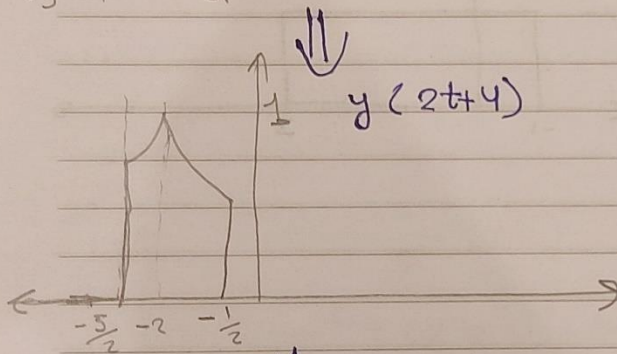 1
y (2t+4)
-5/2 -2 -1/2